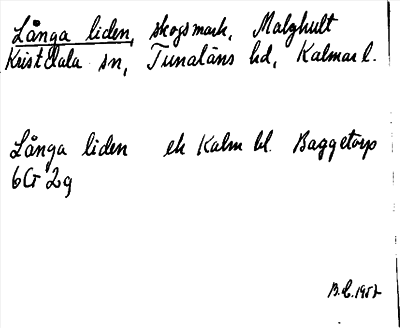 Långa liden, skogsmark, Malghult
Kristdala sn, Tunaläns hd, Kalmar l.
Långa liden ek Kalm bl. Baggetorp
6G 2g
B.L. 1957